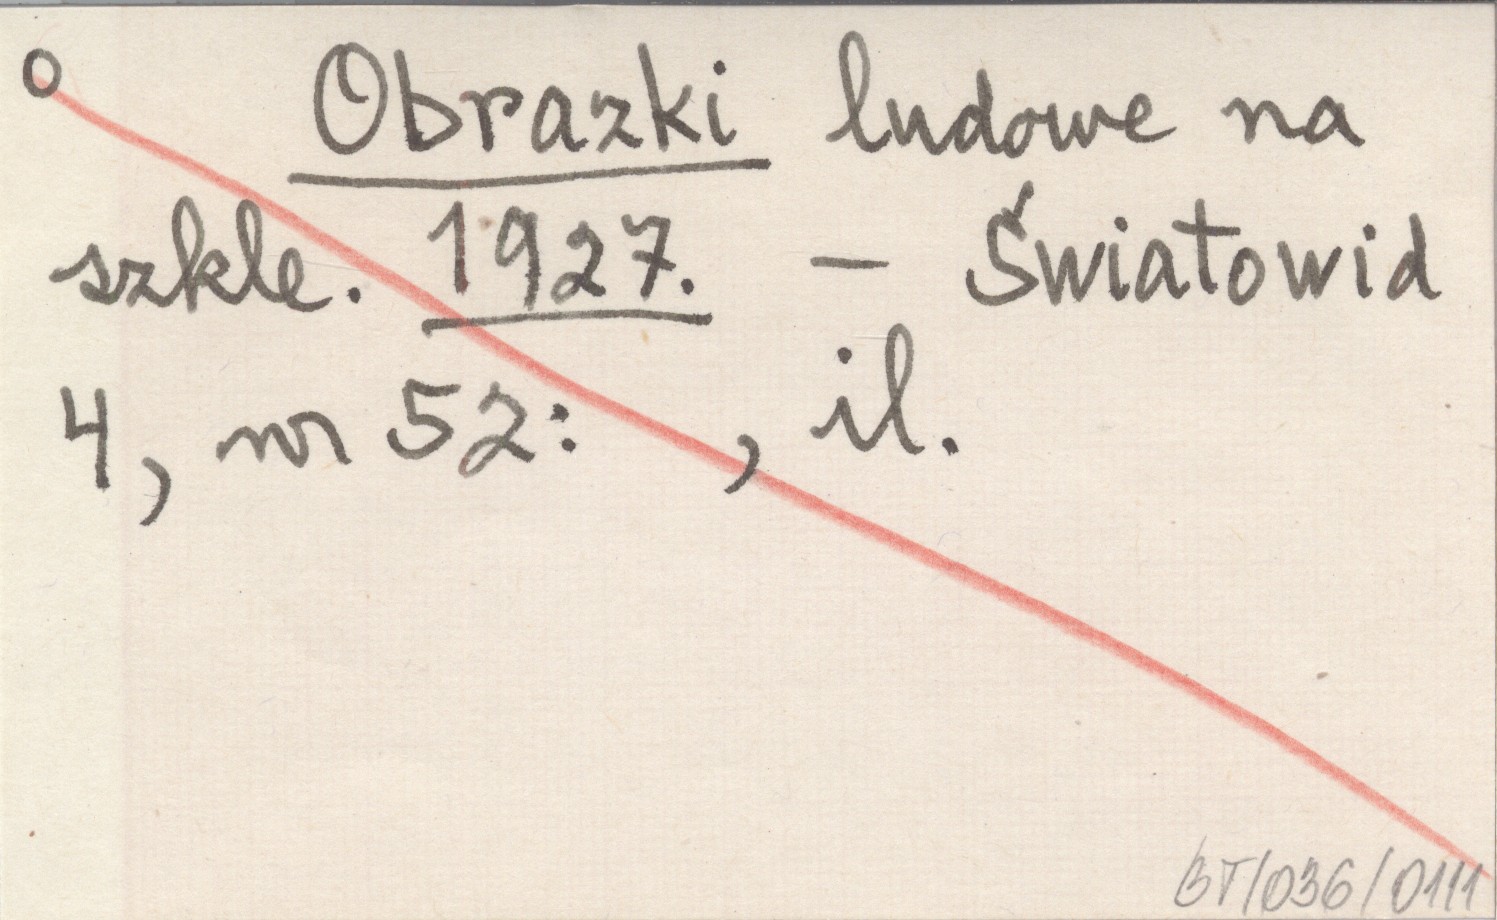 O
Obrazki ludowe na
szkle. 1927. – Światowid
4, nr 52: , il.
BT/036/0111